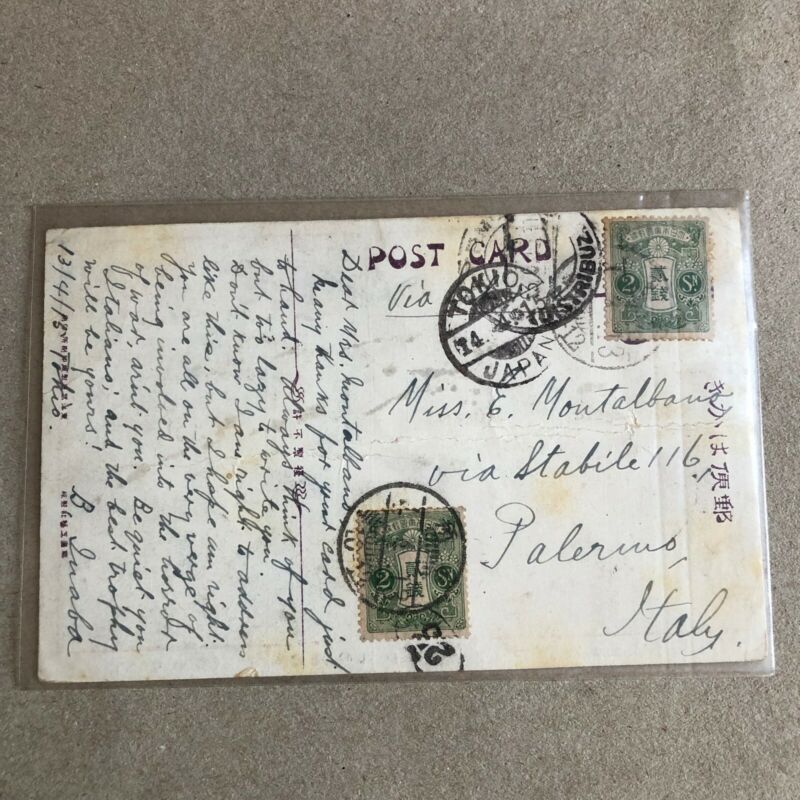 POST CARD
Via
TOKIO
14.
JAPAN
DISTRIBUZ
貳錢
2
Sn
郵便はかき
Miss. E. Montalbano
via Stabile 116,
Palermo,
Italy.
貳錢
2
Sn
Dear Mrs. Montalbano
Many thanks for your card just
to hand. Always think of you
but too lazy to write you.
Don't know I am right to address
like this, but I hope am right.
You are all on the very verge of
being involved into the horror
of war, ain't you. Be quiet you
Italians, and the best trophy
will be yours!
B Inaba
13/4/15 Tokio.